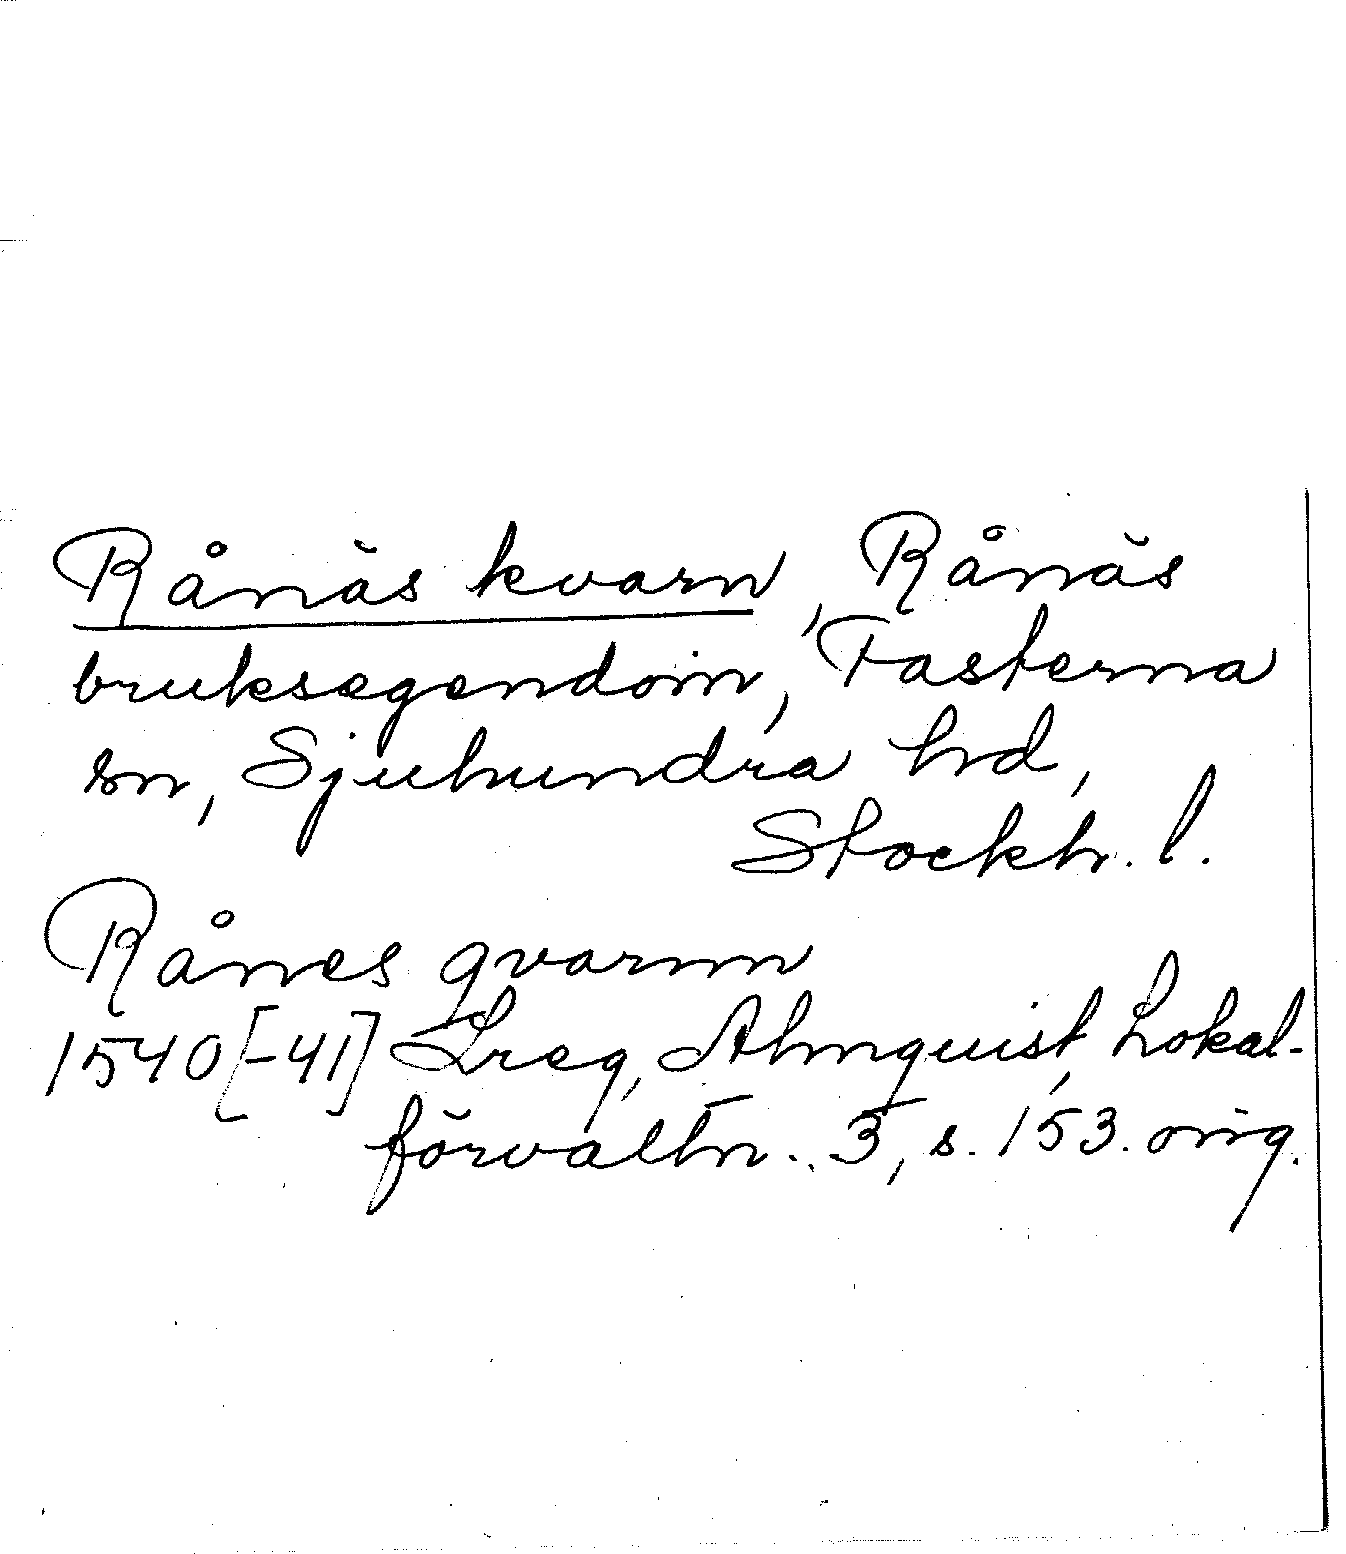 Rånäs kvarn, Rånäs
bruksegendom, Fasterna
sn, Sjuhundra hd,
Stockh. l.
Rånes qvarnn
1540[-41] Lreg, Almquist, Lokal-
förvaltn. 3, s. 153. orig.